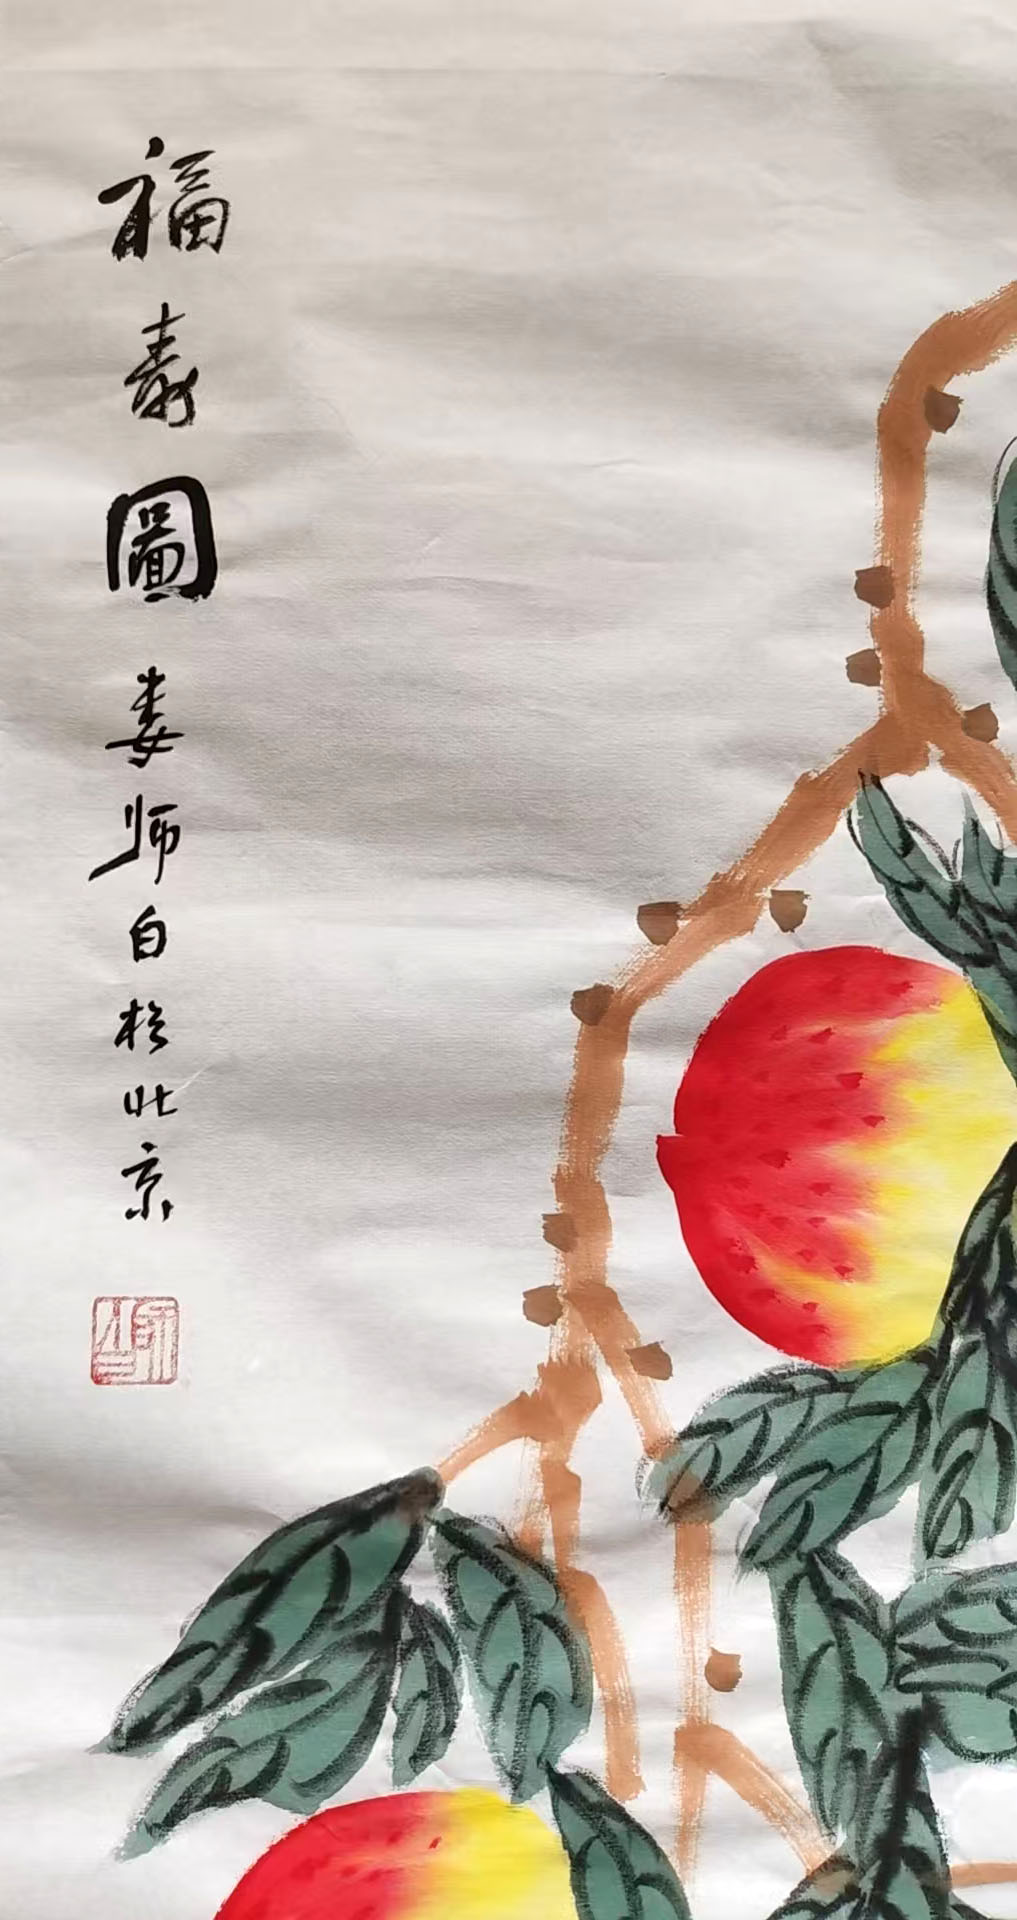 福寿圖 娄师白於北京